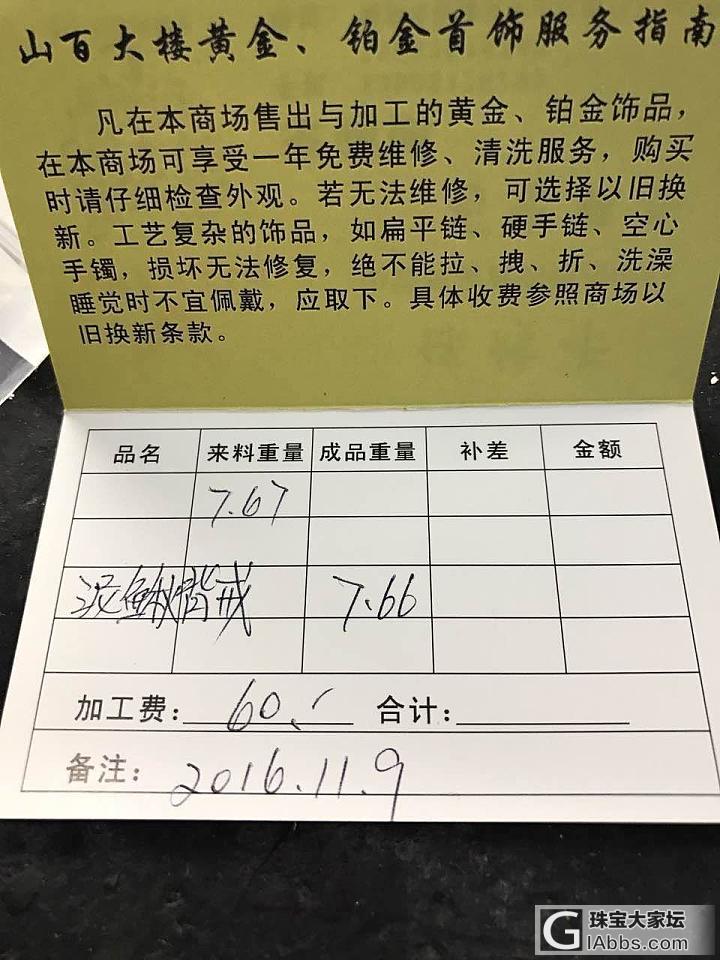 山百大楼黄金、铂金首饰服务指南
凡在本商场售出与加工的黄金、铂金饰品，
在本商场可享受一年免费维修、清洗服务，购买
时请仔细检查外观。若无法维修，可选择以旧换
新。工艺复杂的饰品，如扁平链、硬手链、空心
手镯，损坏无法修复，绝不能拉、拽、折、洗澡
睡觉时不宜佩戴，应取下。具体收费参照商场以
旧换新条款。
品名 来料重量 成品重量 补差 金额
7.67
泥鳅背戒 7.66
加工费：60. 合计：
备注：2016.11.9
珠宝大家坛
GIAbbs.com